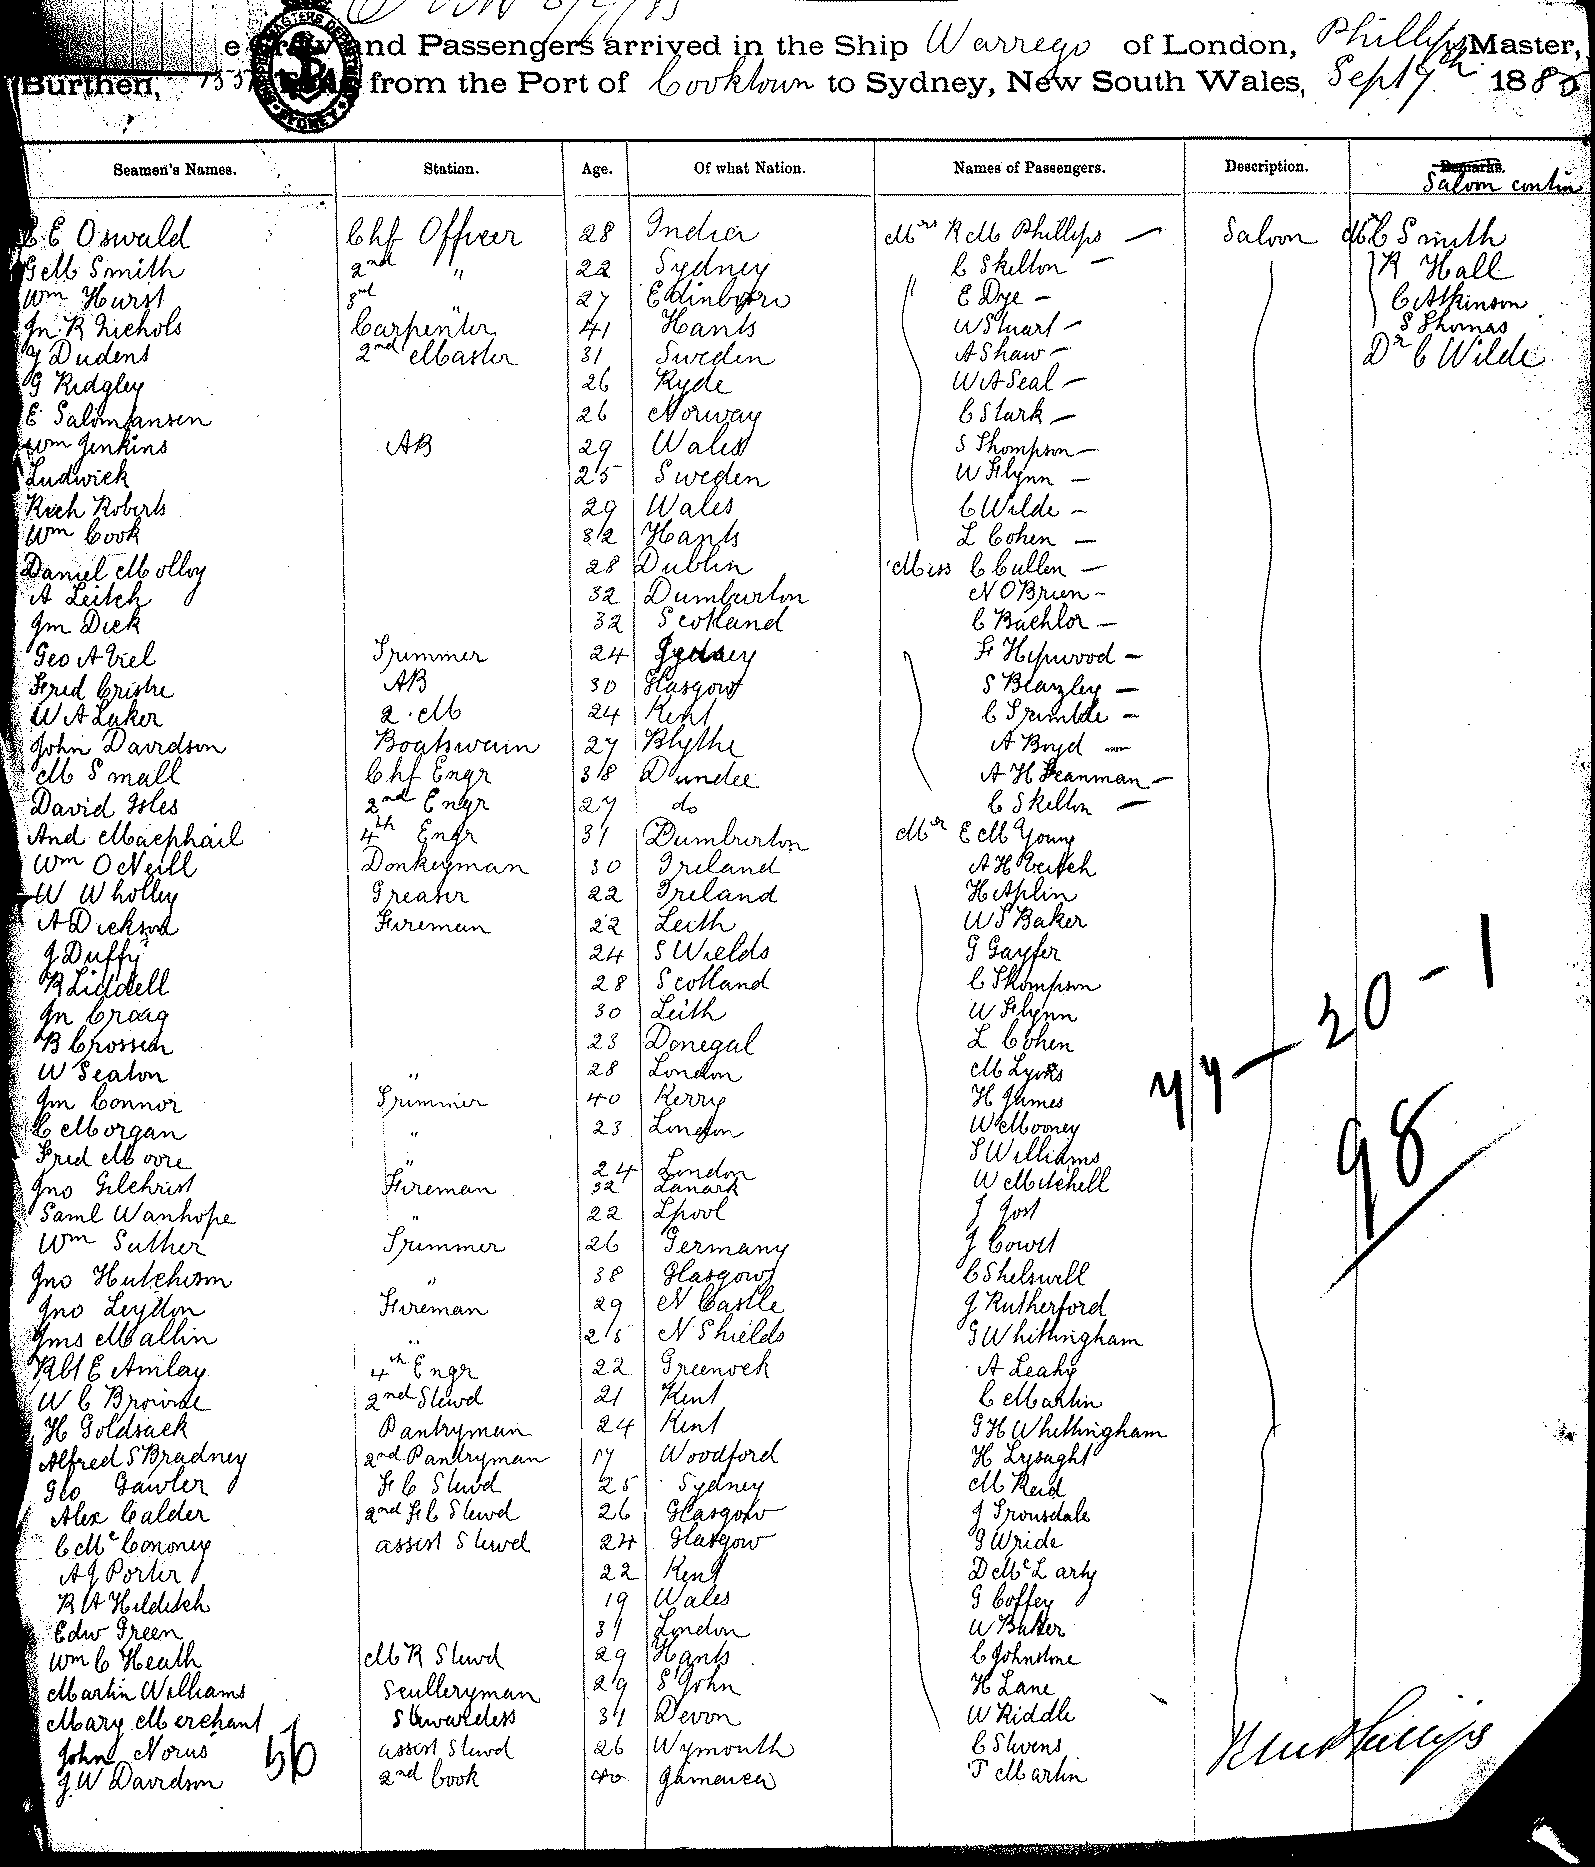 e Crew and Passengers arrived in the Ship Warrego of London, Phillips Master,
Burthen, from the Port of Cooktown to Sydney, New South Wales, Sept 1885
Seamen's Names. Station. Age. Of what Nation. Names of Passengers. Description. Remarks.
Saloon contin
C E Oswald Chf Officer 28 India Mrs R M Phillips — Saloon C Smith
G M Smith 2nd " 22 Sydney C Skelton — R Hall
Wm Hurst 3rd " 27 Edinboro E Dye — C Atkinson
Jn R Nichols Carpenter 41 Hants W Stuart — S Thomas
J Dudens 2nd Master 31 Sweden A Shaw — Dr C Wilde
G Ridgley 26 Ryde W A Seal —
E Salomansen 26 Norway C Stark —
Wm Jenkins AB 29 Wales S Thompson —
Ludwick 25 Sweden W Flynn —
Rich Roberts 29 Wales C Wilde —
Wm Cook 32 Hants L Cohen —
Daniel Molloy 28 Dublin Miss C Cullen —
A Leitch 32 Dumburton N OBrien —
Jm Dick 32 Scotland C Bachlor —
Geo A Viel Trimmer 24 Sydney F Hipwood —
Fred Cristie AB 30 Glasgow S Blazley —
W A Luker 2 . M 24 Kent C Trimble —
John Davidson Boatswain 27 Blythe A Boyd —
M Small Chf Engr 38 Dundee A H Feanman —
David Isles 2nd Engr 27 do C Skelton —
And Macphail 4th Engr 31 Dumburton Mr E M Young
Wm ONeill Donkeyman 30 Ireland A H Veitch
W Wholley Greaser 22 Ireland H Aplin
A Dickson Fireman 22 Leith W S Baker
J Duffy 24 S Wields G Gayfer
R Liddell 28 Scotland C Thompson
Jn Craig 30 Leith W Flynn
B Crossen 23 Donegal L Cohen
W Seaton " 28 London M Lyons
Jm Connor Trimmer 40 Kerry H James
C Morgan " 23 London W Mooney
Fred Moore " 24 London S Williams
Jno Gilchrist Fireman 32 Lanark W Mitchell
Saml Wanhope " 22 Lpool J Jost
Wm Suther Trimmer 26 Germany J Cowet
Jno Hutchison " 38 Glasgow C Shelswell
Jno Leytton Fireman 29 N Castle J Rutherford
Jms Mallin " 25 N Shields G Whittingham
Rbt E Amlay 4th Engr 22 Greenock A Leahy
W C Browne 2nd Stewd 21 Kent C Martin
H Goldsack Pantryman 24 Kent G H Whittingham
Alfred S Bradney 2nd Pantryman 17 Woodford H Lysaght
Geo Gawler F C Stewd 25 Sydney M Reid
Alex Calder 2nd F C Stewd 26 Glasgow J Trousdale
C McCononey assist Stewd 24 Glasgow G Wride
A J Porter 22 Kent D McLarty
R A Hilditch 19 Wales G Coffey
Edw Green 31 London W Baker
Wm C Heath M R Stewd 29 Hants C Johnstone
Martin Williams Sculleryman 29 St John H Lane
Mary Merchant Stewardess 31 Devon W Riddle
John Norus assist Stewd 26 Wymouth C Stevens
J W Davidson 2nd Cook 40 Jamaica T Martin
56
77 — 20 - 1
98
R M Phillips